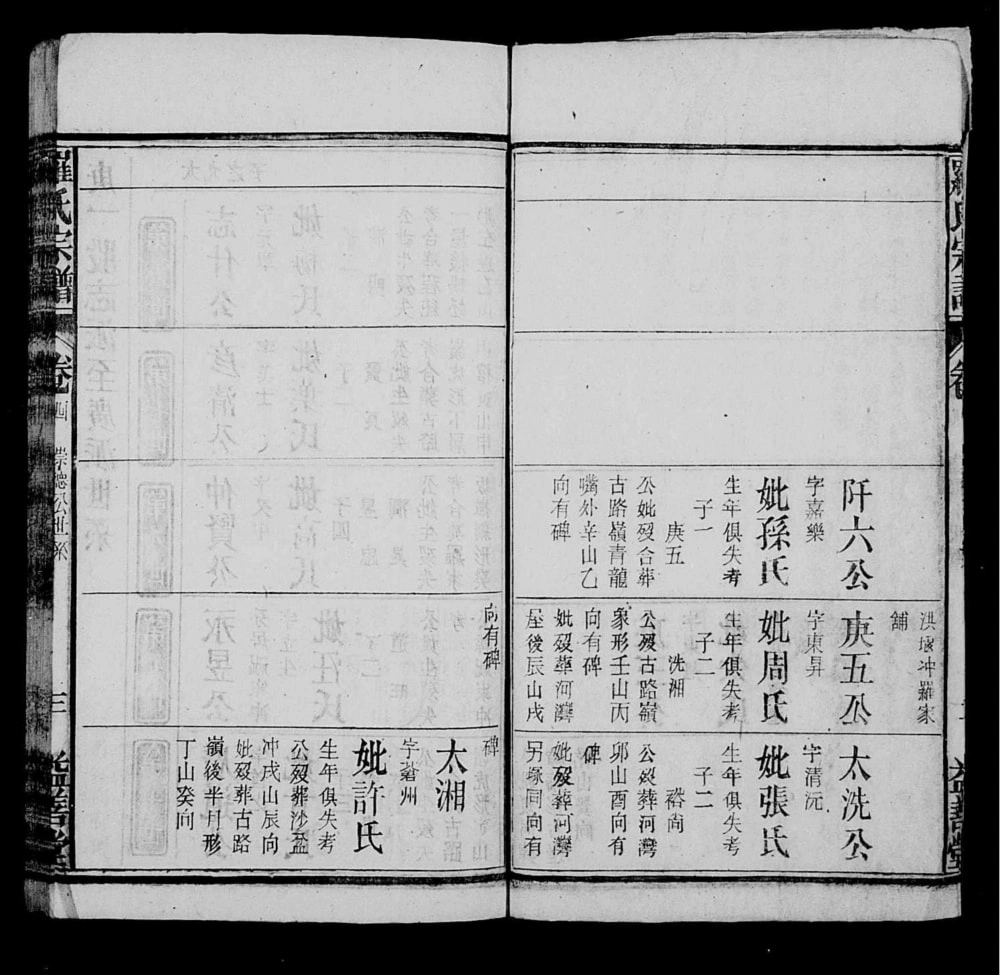 羅氏宗譜
卷
益善堂
阡六公
字嘉樂
妣孫氏
生年俱失考
子一
庚五
公妣歿合葬
古路嶺青龍
嘴外辛山乙
向有碑
洪堰冲羅家
舖
庚五公
字東昇
妣周氏
生年俱失考
子二
洗湘
公歿古路嶺
象形壬山丙
向有碑
妣歿葬河灣
屋後辰山戌
太洗公
字清沅
妣張氏
生年俱失考
子二
公歿葬河灣
卯山酉向有
碑
妣歿葬河灣
另塚同向有
向有碑
碑
太湘
字蒼州
妣許氏
生年俱失考
公歿葬沙
冲戌山辰向
妣歿葬古路
嶺後半月形
丁山癸向
羅氏宗譜
卷四
崇德公世系
三
益善堂